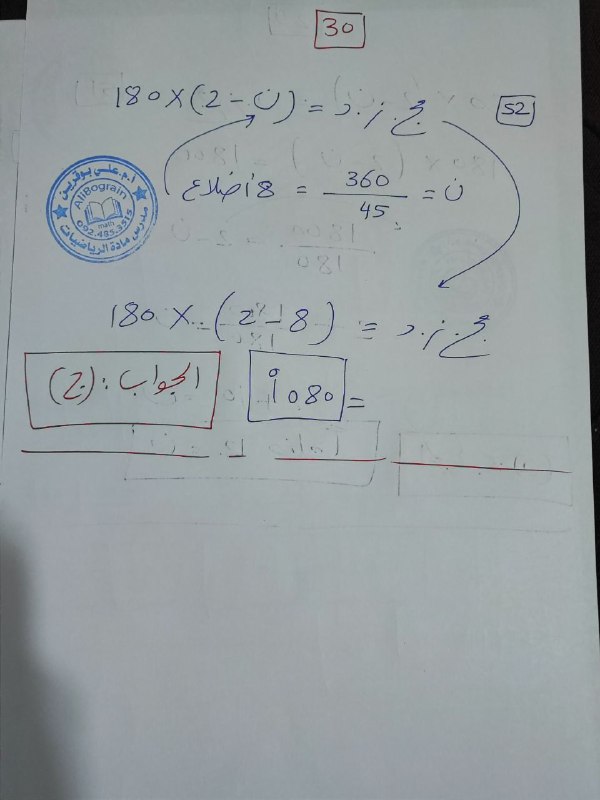 30
52 مج.ز.د = (ن - 2) × 180
ن = 360 / 45 = 8 أضلاع
أ.م.علي بوقرين
AliBograin
math
092.485.3515
مدرس مادة الرياضيات
مج.ز.د = (8 - 2) × 180
= 1080°
الجواب: (ج)